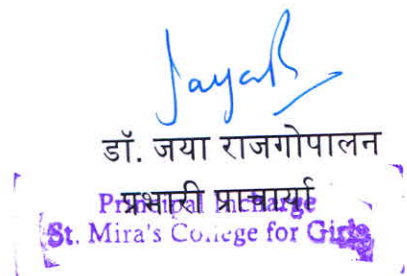 JayaR
डॉ. जया राजगोपालन
प्रभारी प्राचार्या
Principal Incharge
St. Mira's College for Girls